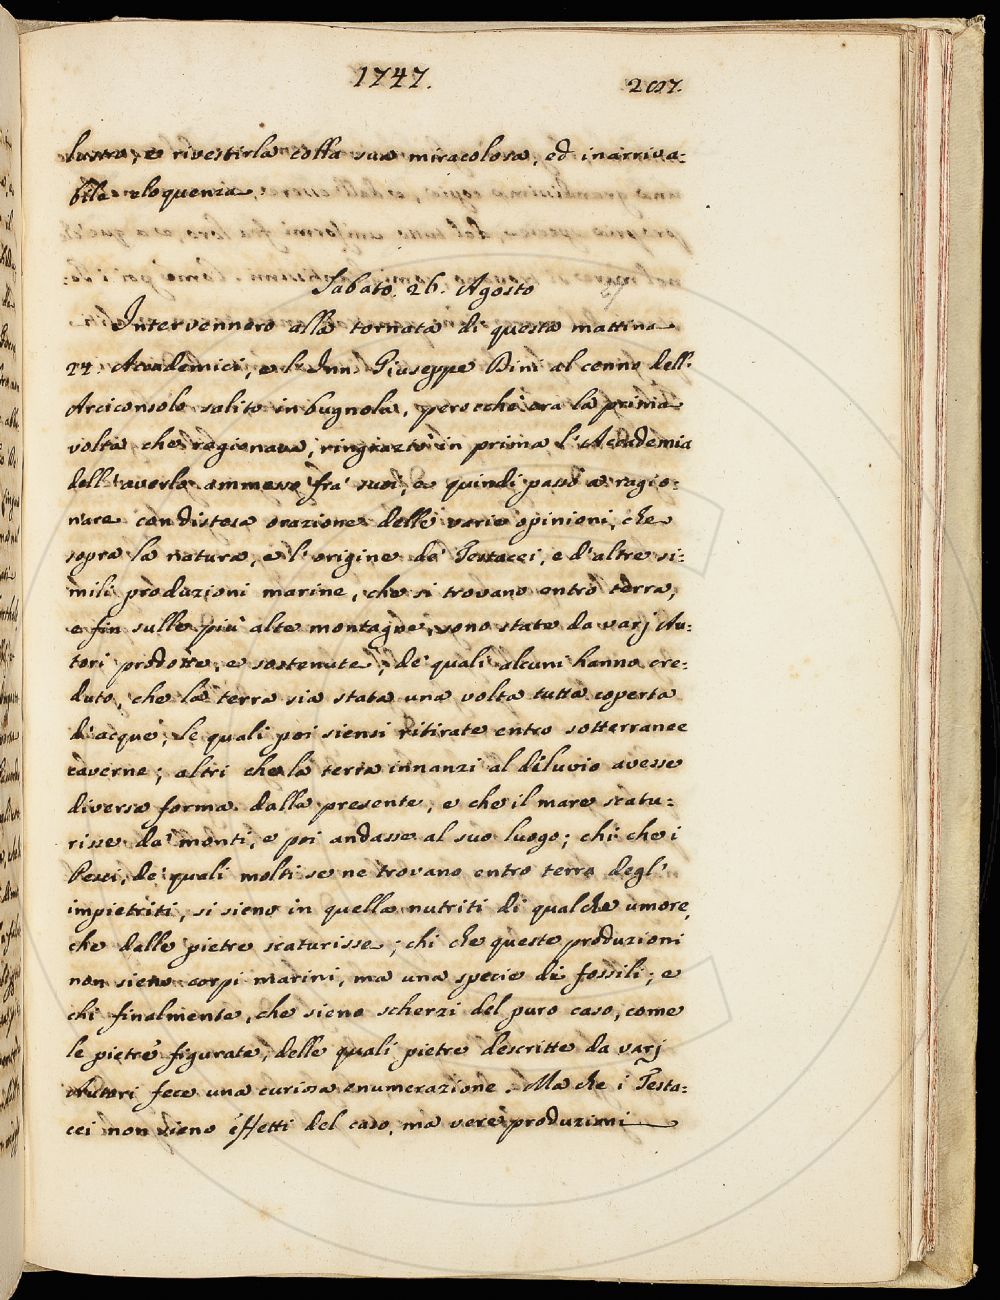 1747.
207.
lustro, e rivestirla colla sua miracolosa, ed inarriva:
bile eloquenza.
Sabato 26. Agosto
Intervennero alla tornata di questa mattina
24. Accademici, e l'Inn. Giuseppe Bini al cenno dell'
Arciconsolo salito in bugnola, perocchè era la prima
volta che ragionava, ringraziò in prima l'Accademia
dell'averlo ammesso frà suoi, e quindi passò a ragio:
nare con distesa orazione delle varie opinioni, che
sopra la natura, e l'origine de' Testacei, e d'altre si:
mili produzioni marine, che si trovano entro terra,
e fin sulle più alte montagne, sono state da varj Au:
tori prodotte, e sostenute, de' quali alcuni hanno cre:
duto, che la terra sia stata una volta tutta coperta
d'acque, le quali poi siensi ritirate entro sotterranee
caverne; altri che la terra innanzi al diluvio avesse
diversa forma dalla presente, e che il mare scatu:
risse da' monti, e poi andasse al suo luogo; chi che i
Pesci, de' quali molti se ne trovano entro terra degl'
impietriti, si sieno in quella nutriti di qualche umore,
che dalle pietre scaturisse; chi che queste produzioni
non sieno corpi marini, ma una specie di fossili; e
chi finalmente, che sieno scherzi del puro caso, come
le pietre figurate, delle quali pietre descritte da varj
Autori fece una curiosa enumerazione. Ma che i Testa:
cei non sieno effetti del caso, ma vere produzioni